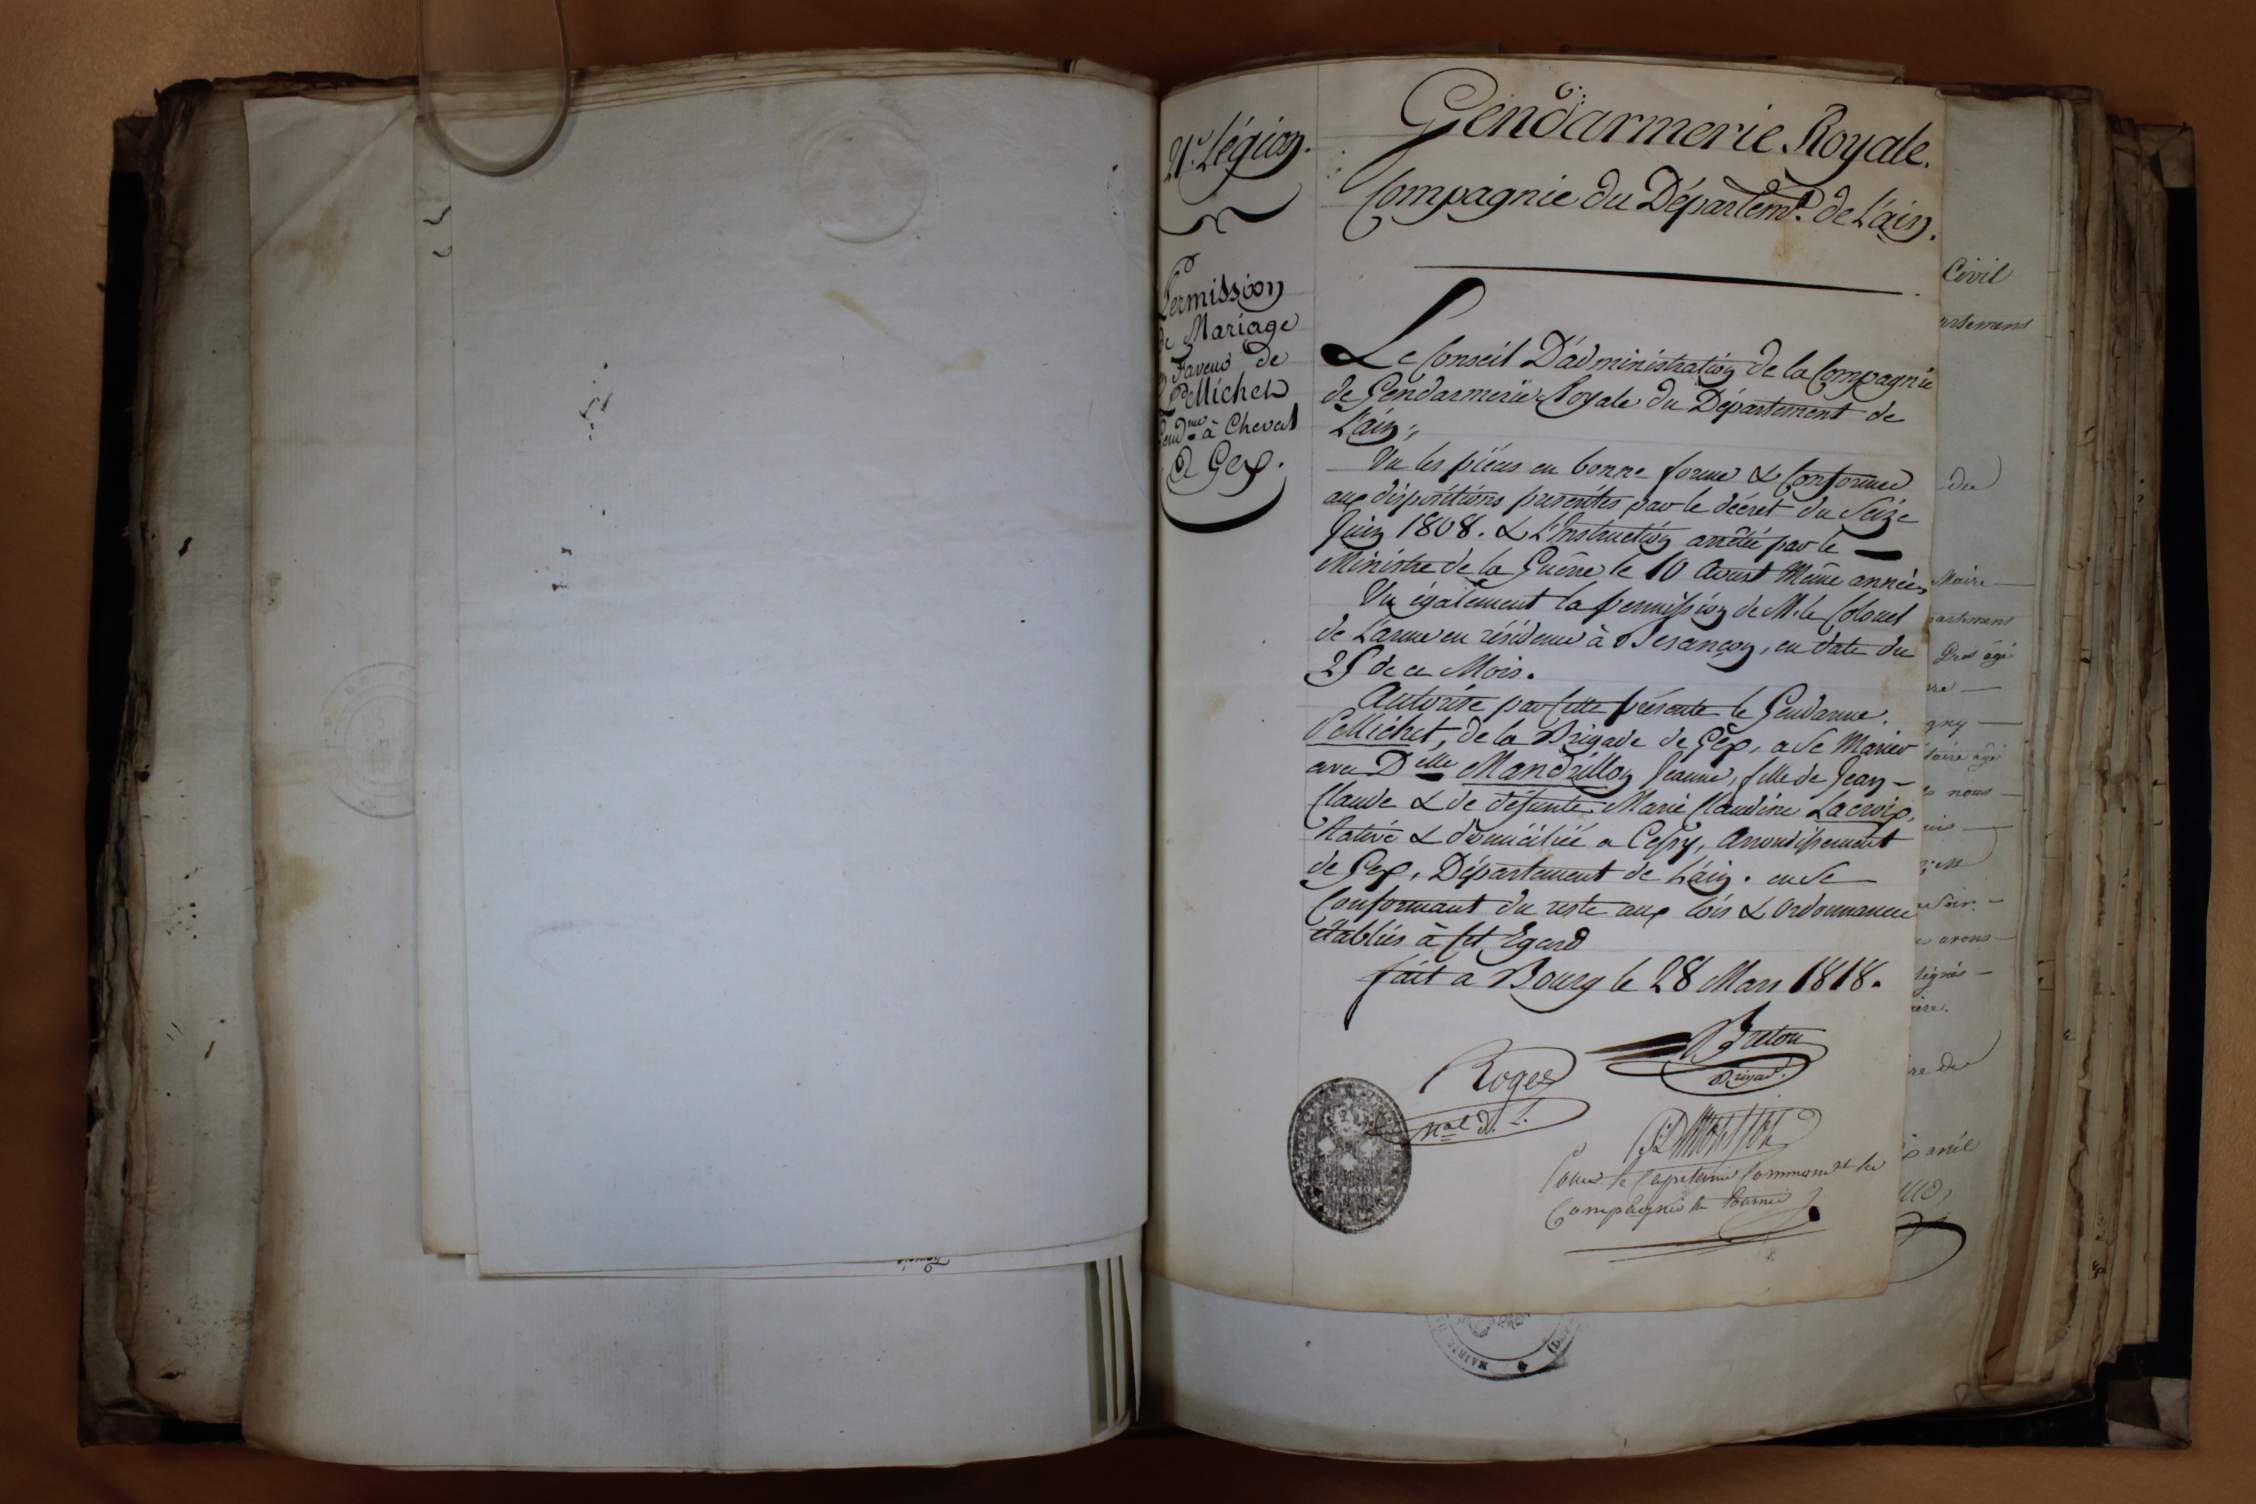 Légion.
Permission
de Mariage
Faveur de
Pellichet
Gendme à Cheval
à Gex.
Gendarmerie Royale.
Compagnie du Départemt. de L'ain.
Le Conseil D'administration de la Compagnie
de Gendarmerie Royale du Département de
L'ain;
Vu les pièces en bonne forme & Conformes
aux dispositions prescrites par le décret du Seize
Juin 1808. & L'Instruction arrêtée par le
Ministre de la Guerre le 10 Aoust Même année,
Vu également la permission de M. le Colonel
de L'arme en résidence à Besançon, en date du
25 de ce Mois.
Autorise par Cette présente le Gendarme
Pellichet, de la Brigade de Gex, a Se Marier
avec Delle Mandrillon Jeanne, fille de Jean
Claude & de défunte Marie Claudine Lacroix,
Native & domiciliée a Cessy, Arrondissement
de Gex, Département de L'ain. en Se
Conformant du reste aux lois & Ordonnances
établies à Cet Egard
fait a Bourg le 28 Mars 1818.
Breton
Brigad.
Roger
Mal d. L.
Pour le Capitaine Commandt la
Compagnie en Tournée
Civil
du
Maire
nous
avons
MAIRIE